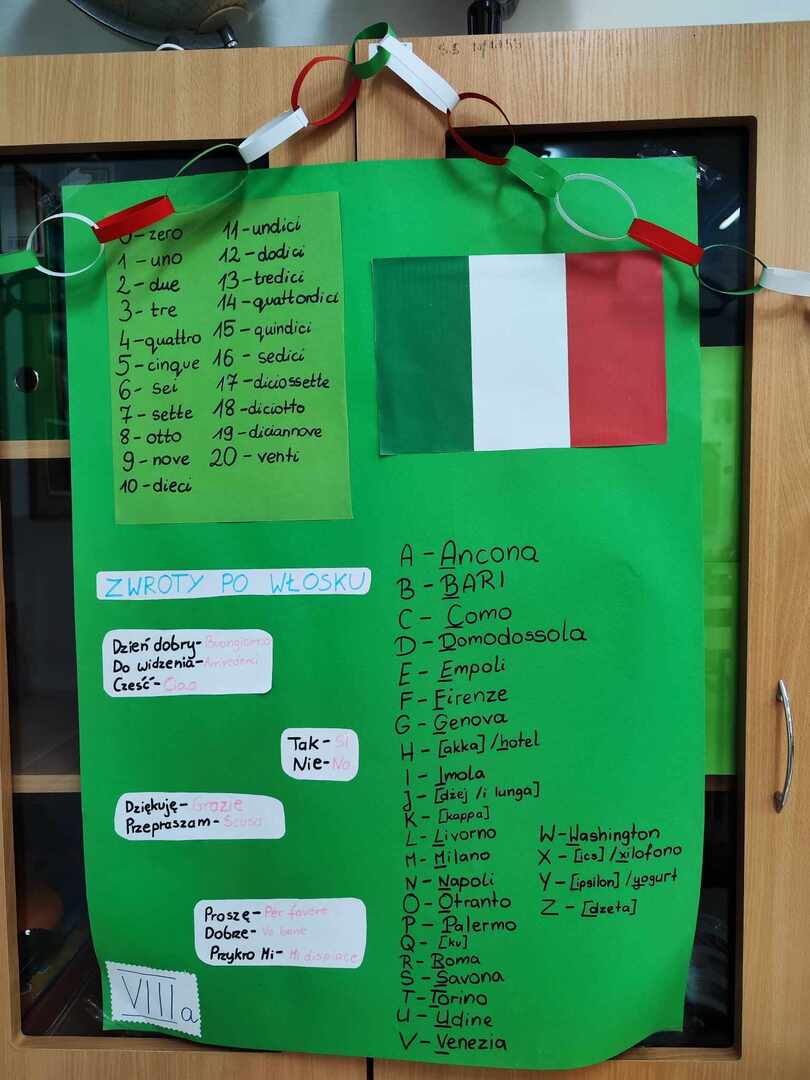 0 - zero
1 - uno
2 - due
3 - tre
4 - quattro
5 - cinque
6 - sei
7 - sette
8 - otto
9 - nove
10 - dieci
11 - undici
12 - dodici
13 - tredici
14 - quattordici
15 - quindici
16 - sedici
17 - diciossette
18 - diciotto
19 - diciannove
20 - venti
ZWROTY PO WŁOSKU
Dzień dobry - Buongiorno
Do widzenia - Arrivederci
Cześć - Ciao
Tak - Si
Nie - No
Dziękuję - Grazie
Przepraszam - Scusa
Proszę - Per favore
Dobrze - Va bene
Przykro Mi - Mi dispiace
VIIIa
A - Ancona
B - BARI
C - Como
D - Domodossola
E - Empoli
F - Firenze
G - Genova
H - [akka] / hotel
I - Imola
J - [dżej / i lunga]
K - [kappa]
L - Livorno
M - Milano
N - Napoli
O - Otranto
P - Palermo
Q - [ku]
R - Roma
S - Savona
T - Torino
U - Udine
V - Venezia
W - Washington
X - [ics] / xilofono
Y - [ipsilon] / yogurt
Z - [dzeta]